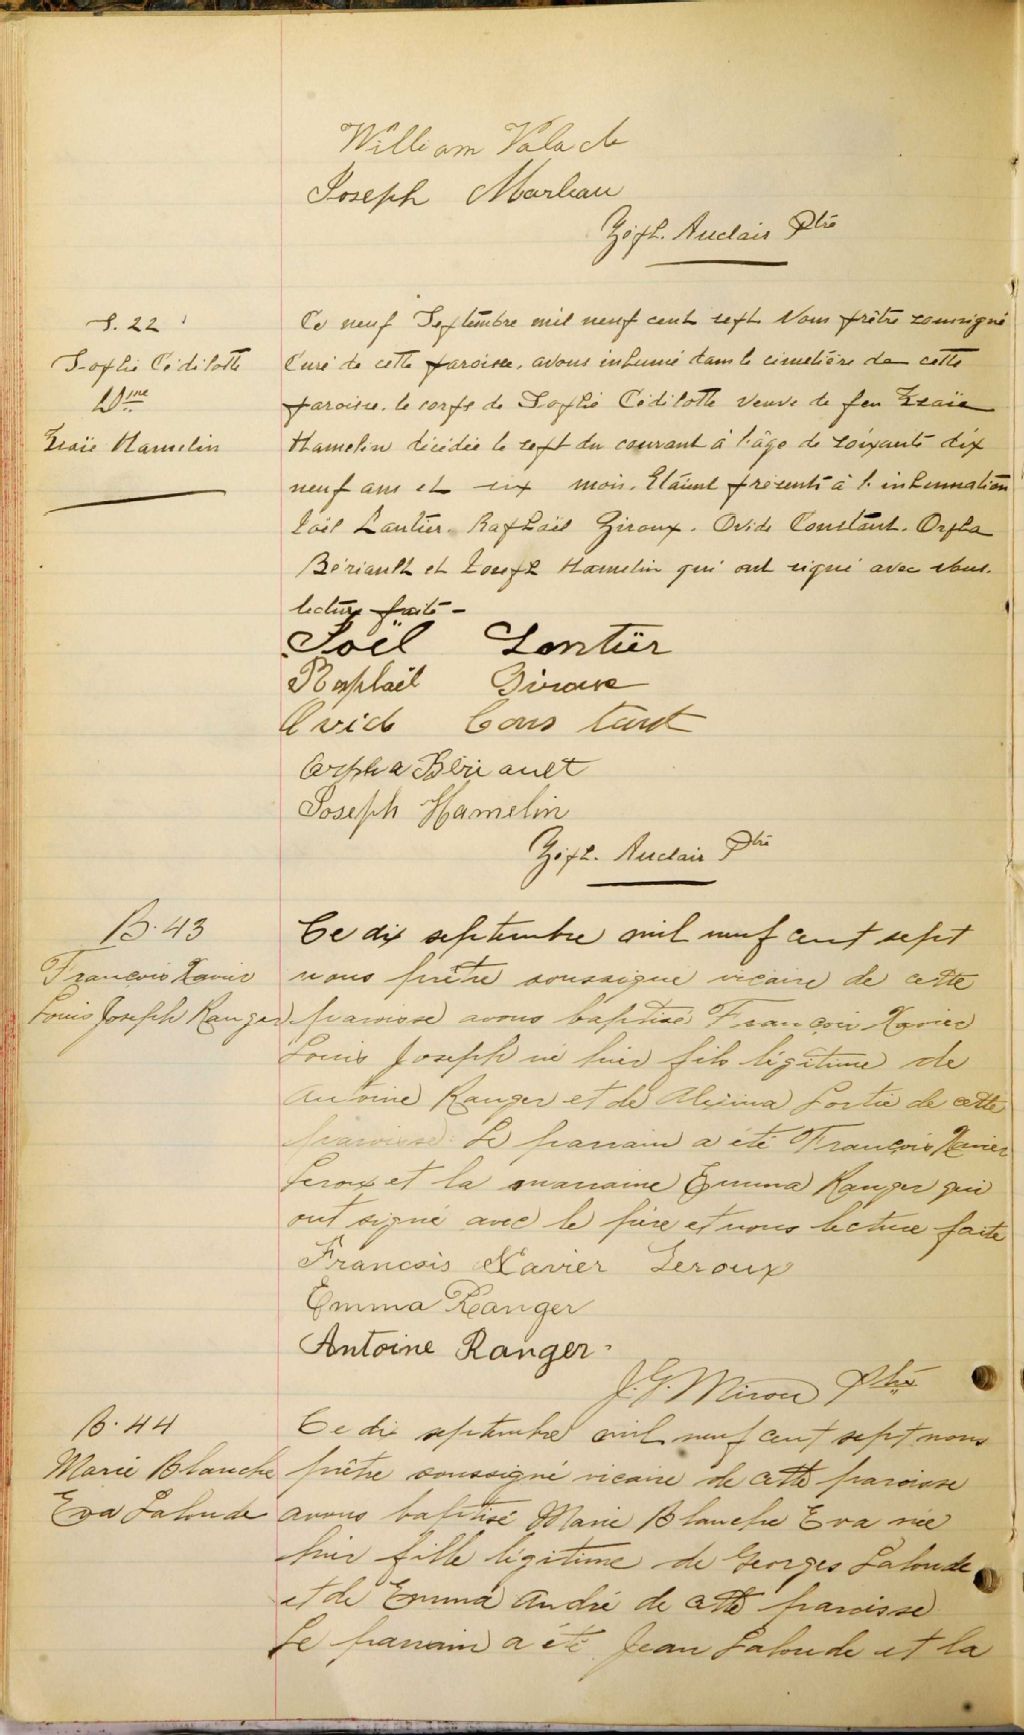 William Valade
Joseph Marleau
Zéph. Auclair Ptre
S. 22
Sophie Cédilotte
Dme
Isaïe Hamelin
Ce neuf Septembre mil neuf cent sept Nous prêtre soussigné
Curé de cette paroisse, avons inhumé dans le cimetière de cette
paroisse, le corps de Sophie Cédilotte veuve de feu Isaïe
Hamelin décédée le sept du courant à l'âge de soixante dix
neuf ans et six mois. Étaient présents à l'inhumation
Joël Lantier. Raphaël Giroux. Ovide Constant. Orpha
Bériault et Joseph Hamelin qui ont signé avec nous.
lecture faite -
Joël Lontiër
Raphaël Giroux
Ovide Constant
Orpha Bériault
Joseph Hamelin
Zéph. Auclair Ptre
B. 43
François Xavier
Louis Joseph Ranger
Ce dix septembre mil neuf cent sept
nous prêtre soussigné vicaire de cette
paroisse avons baptisé François Xavier
Louis Joseph né hier fils légitime de
Antoine Ranger et de Alexina Lortie de cette
paroisse. Le parrain a été François Xavier
Leroux et la marraine Emma Ranger qui
ont signé avec le père et nous lecture faite
Francois Xavier Leroux
Emma Ranger
Antoine Ranger.
J. G. Mirou Ptre
B. 44
Marie Blanche
Eva Lalonde
Ce dix septembre mil neuf cent sept nous
prêtre soussigné vicaire de cette paroisse
avons baptisé Marie Blanche Eva née
hier fille légitime de Georges Lalonde
et de Emma André de cette paroisse
Le parrain a été Jean Lalonde et la